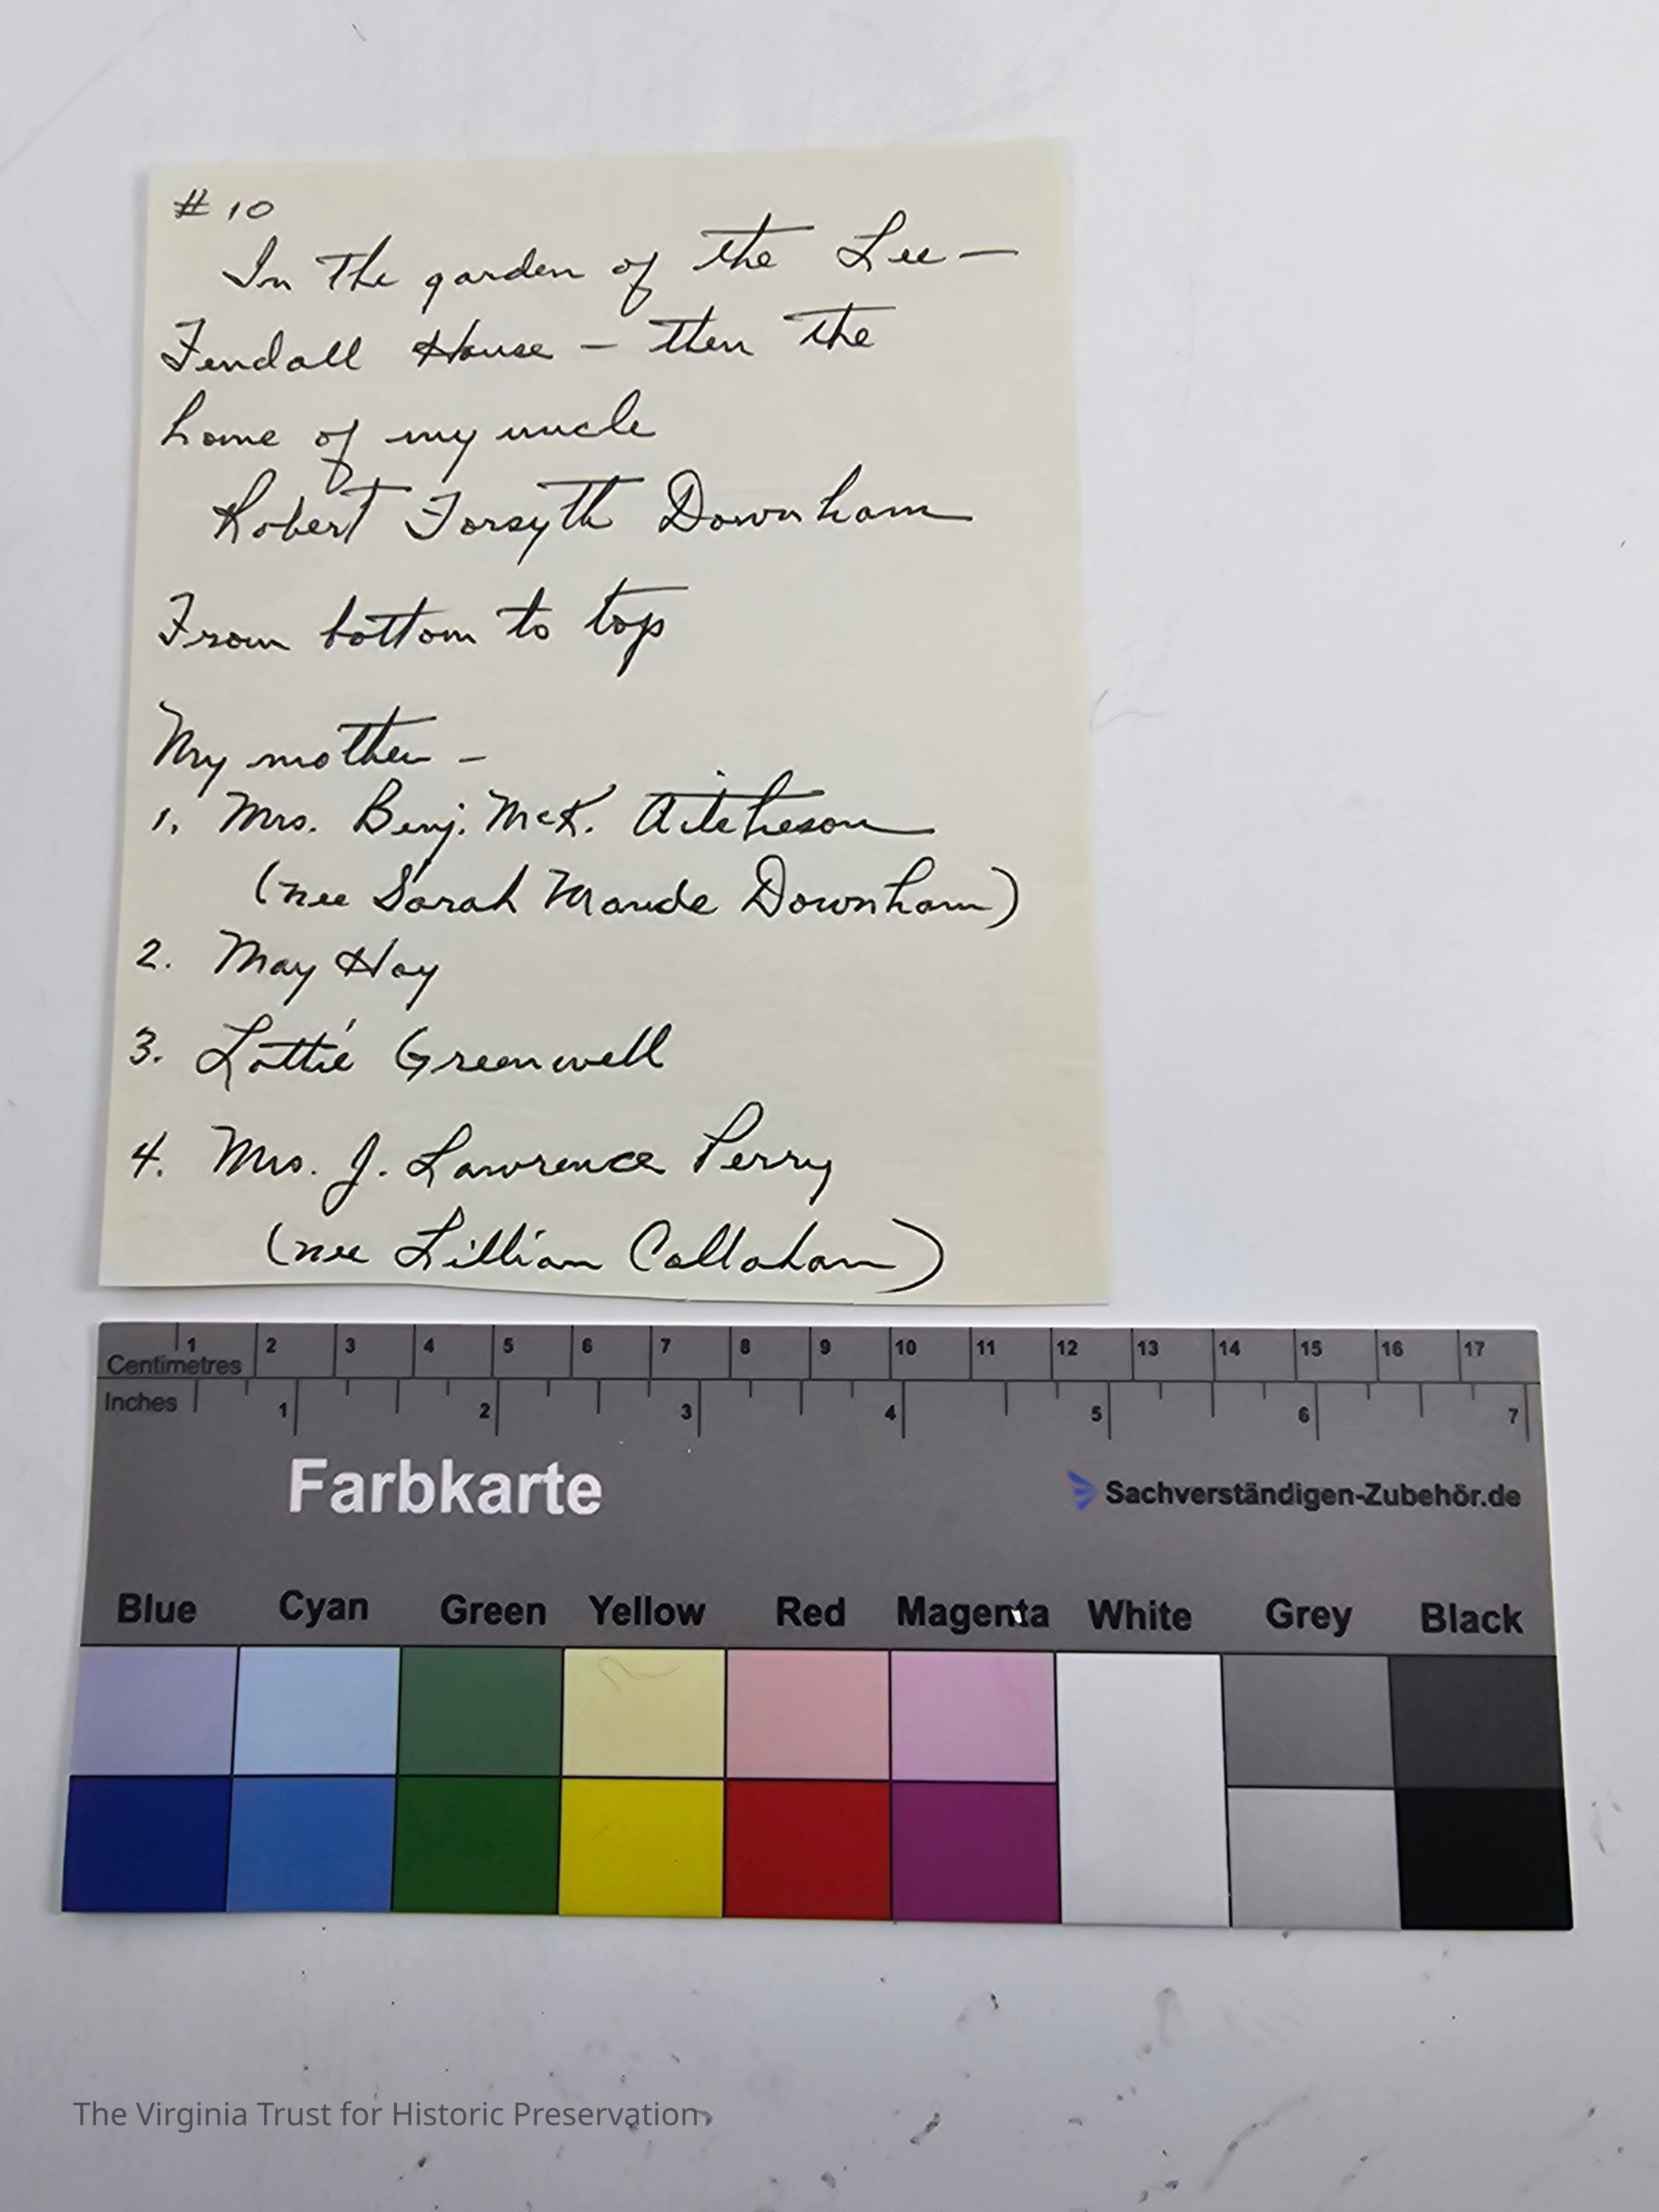 # 10
In the garden of the Lee-
Fendall House - then the
home of my uncle
Robert Forsyth Downham
From bottom to top
My mother -
1. Mrs. Benj. McK. Aitcheson
(nee Sarah Maude Downham)
2. May Hoy
3. Lottie Greenwell
4. Mrs. J. Lawrence Perry
(nee Lillian Callahan)
Centimetres 1 2 3 4 5 6 7 8 9 10 11 12 13 14 15 16 17
Inches 1 2 3 4 5 6 7
Farbkarte
Sachverständigen-Zubehör.de
Blue Cyan Green Yellow Red Magenta White Grey Black
The Virginia Trust for Historic Preservation